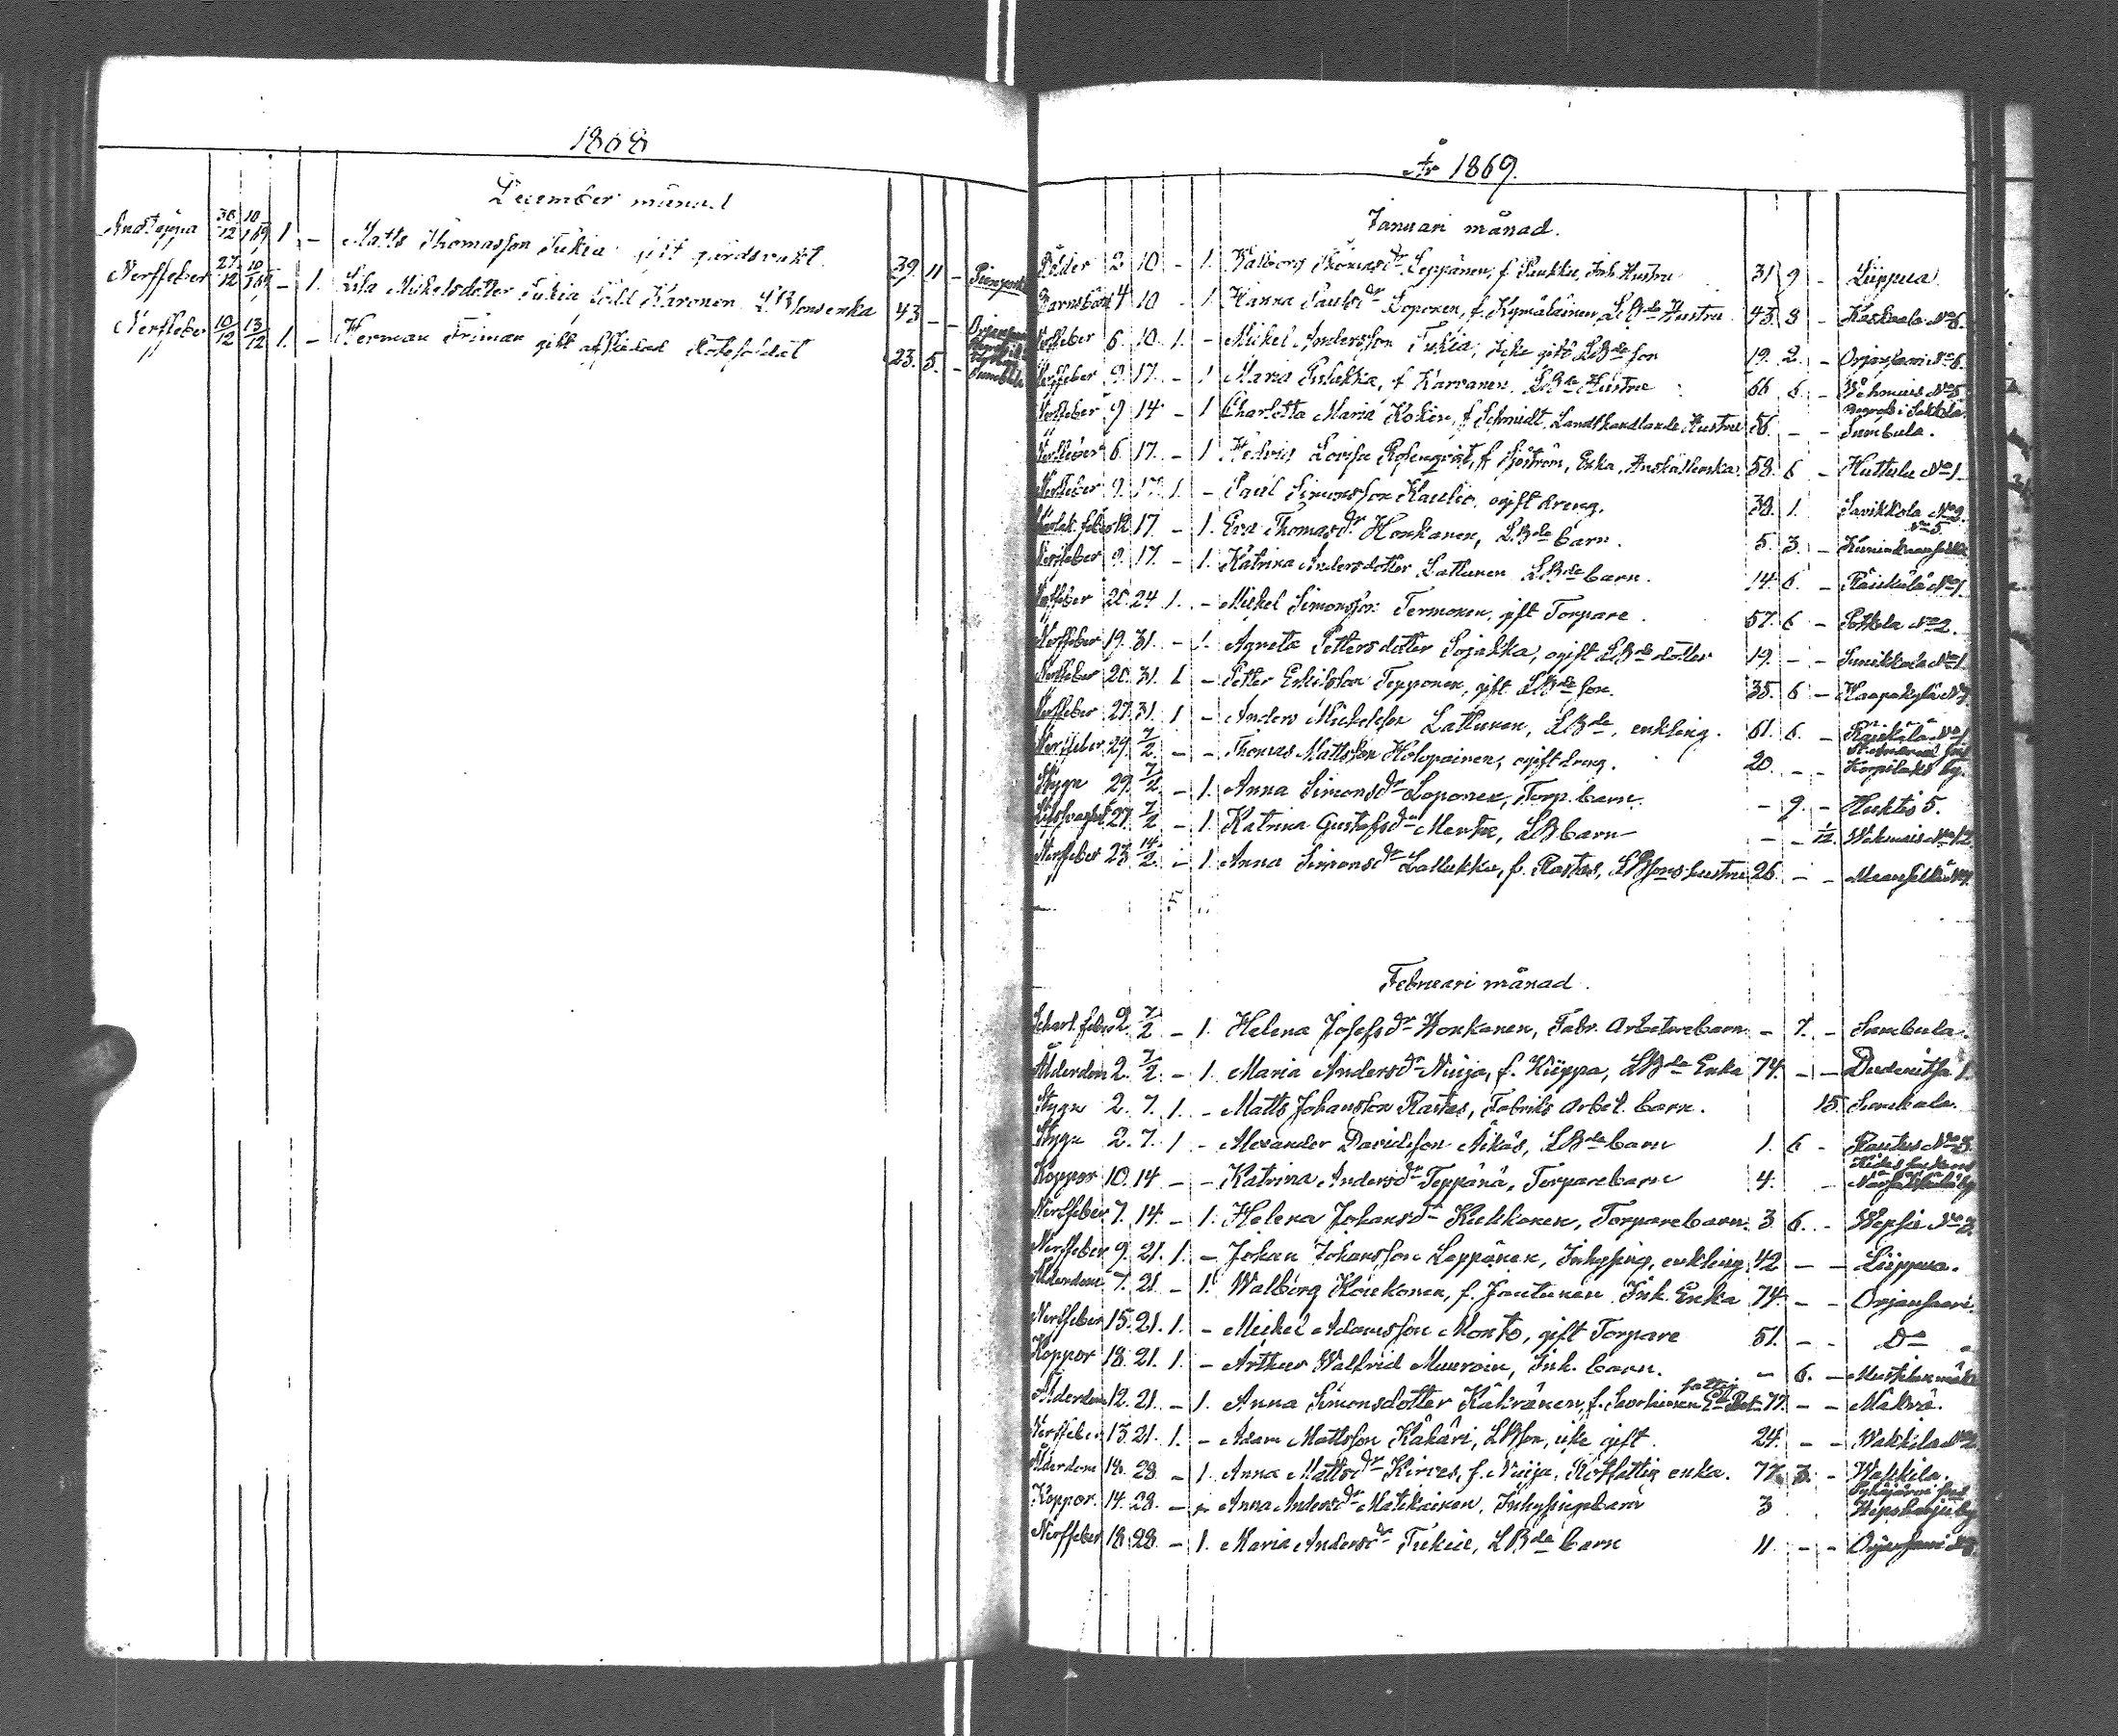 1868
December månad
30/12 10/1 69 1 – Matts Thomasson Tukia gift gårdsvakt 39 11 –
Nerffeber 27/12 10/1 69 – 1. Lisa Mikelsdotter Tukia född Karonen LBsons enka 43 – –
Nerffeber 10/12 13/12 1. – Herman Friman gift afskedad Rotesoldat 23. 5. –
År 1869.
Januari månad.
2 10 – 1. Walborg Thomasdr Leppänen, f. Pukki, Inh. Hustru 31 9 – Liippua
Barnsbörd 4 10 – 1 Hanna Paulsdr Loponen, f. Kymäläinen, LBde Hustru 43 8 – Kaskaala No 6.
Nerffeber 6. 10. 1. – Mikel Andersson Tukia, icke gift LBde son 19. 2. – Orjansaari No 6.
Nerffeber 9. 17. – 1 Maria Pulakka, f. Karvanen LBde Hustru 66 6 – Wehmais No 5
Nerffeber 9 14 – 1 Charlotta Maria Kokin, f. Schmidt, Landthandlande Hustru 56. – – Sumbula.
Nerffeber 6. 17. – 1 Hedvig Lovisa Rosenqvist, f. Sjöström, Enka, 58. 6 – Huttula No 1
Nerffeber 9. 17. 1. – Paul Simonsson Kaulio, ogift dreng. 30. 1. Savikkola No 2.
17 – 1. Eva Thomasdr Honkanen, LBde barn. 5. 3. –
Nerffeber 9. 17. – 1. Katrina Andersdotter Lattunen LBde barn. 14. 6. – Räikälä No 1.
Nerffeber 20. 24 1. – Mikel Simonsson Termonen, gift Torpare. 57. 6 – Pottola No 2.
Nerffeber 19. 31. – 1. Agneta Pettersdotter Sojakka, ogift LBde dotter 19. – – Sunikkala No 1
Nerffeber 20. 31. 1 – Petter Eskilsson Tepponen, gift LBde son. 35. 6 – Haapakylä No
Nerffeber 27. 31. 1 – Anders Mickelsson Lattunen, LBde, enkling. 61. 6. – Räikälä No 1
Nerffeber 29. 7/2. – – Thomas Mattsson Holopainen, ogift dreng. 20. – – Korpilaks by.
Stygn 29. 7/2 – 1. Anna Simonsdr Loponen, Torp. barn. – 9. – Huktis 5.
27. 7/2 – 1. Katrina Gustafsdr Mentu, LB barn – – 1/12 Wehmais No 12
Nerffeber 23. 14/2. – 1. Anna Simonsdr Lallukka, f. Rastas, LBsons hustru 26. – –
5
Februari månad.
Scharl. feber 2. 7/2 – 1. Helena Josefsdr Honkanen, Fabr. Arbetarebarn – 7. – Sumbula.
Ålderdom 2. 7/2. – 1. Maria Andersdr Nuija, f. Kiippa, LBde Enka 74. – – Dudenitsa 1.
Stygn 2. 7. 1. – Matts Johansson Rastas, Fabriks Arbet. barn. 15 Sumbula.
Stygn 2. 7. 1 – Alexander Davidsson Äikäs, LBde barn 1. 6 – Rautus No 3.
Koppor 10. 14 – – Katrina Andersdr Teppänä, Torparebarn 4. –
Nerffeber 7. 14. – 1. Helena Johansdr Kiukkonen, Torparebarn. 3 6. – Wepsä No 3
Nerffeber 9. 21. 1. – Johan Johansson Leppänen, Inhysing, enkling 42 – – Liippua.
Ålderdom 7. 21 – 1. Walborg Kiukonen, f. Jantunen Inh. Enka 74. – – Orjansaari.
Nerffeber 15. 21. 1. – Mickel Adamsson Monto, gift Torpare 51. – – Do
Koppor 18. 21. 1. – Arthur Walfrid Muuroin, Inh. barn. – 6. –
Ålderdom 12. 21. – 1. Anna Simonsdotter Käkränen, f. 77. – – Mäkrä.
Nerffeber 13. 21. 1. – Adam Mattsson Kakäri, LBson, icke gift. 24. – – Wakkila No 2
Ålderdom 18. 28 – 1. Anna Mattsdr Kirves, f. Nuija, Rotfattig enka. 77. 3. – Wakkila.
Koppor. 14. 28. – – Anna Andersdr Matikainen, Inhysingebarn 3
Nerffeber 18. 28. – 1. Maria Andersdr Tukia, LBde barn 11. – – Orjansaari